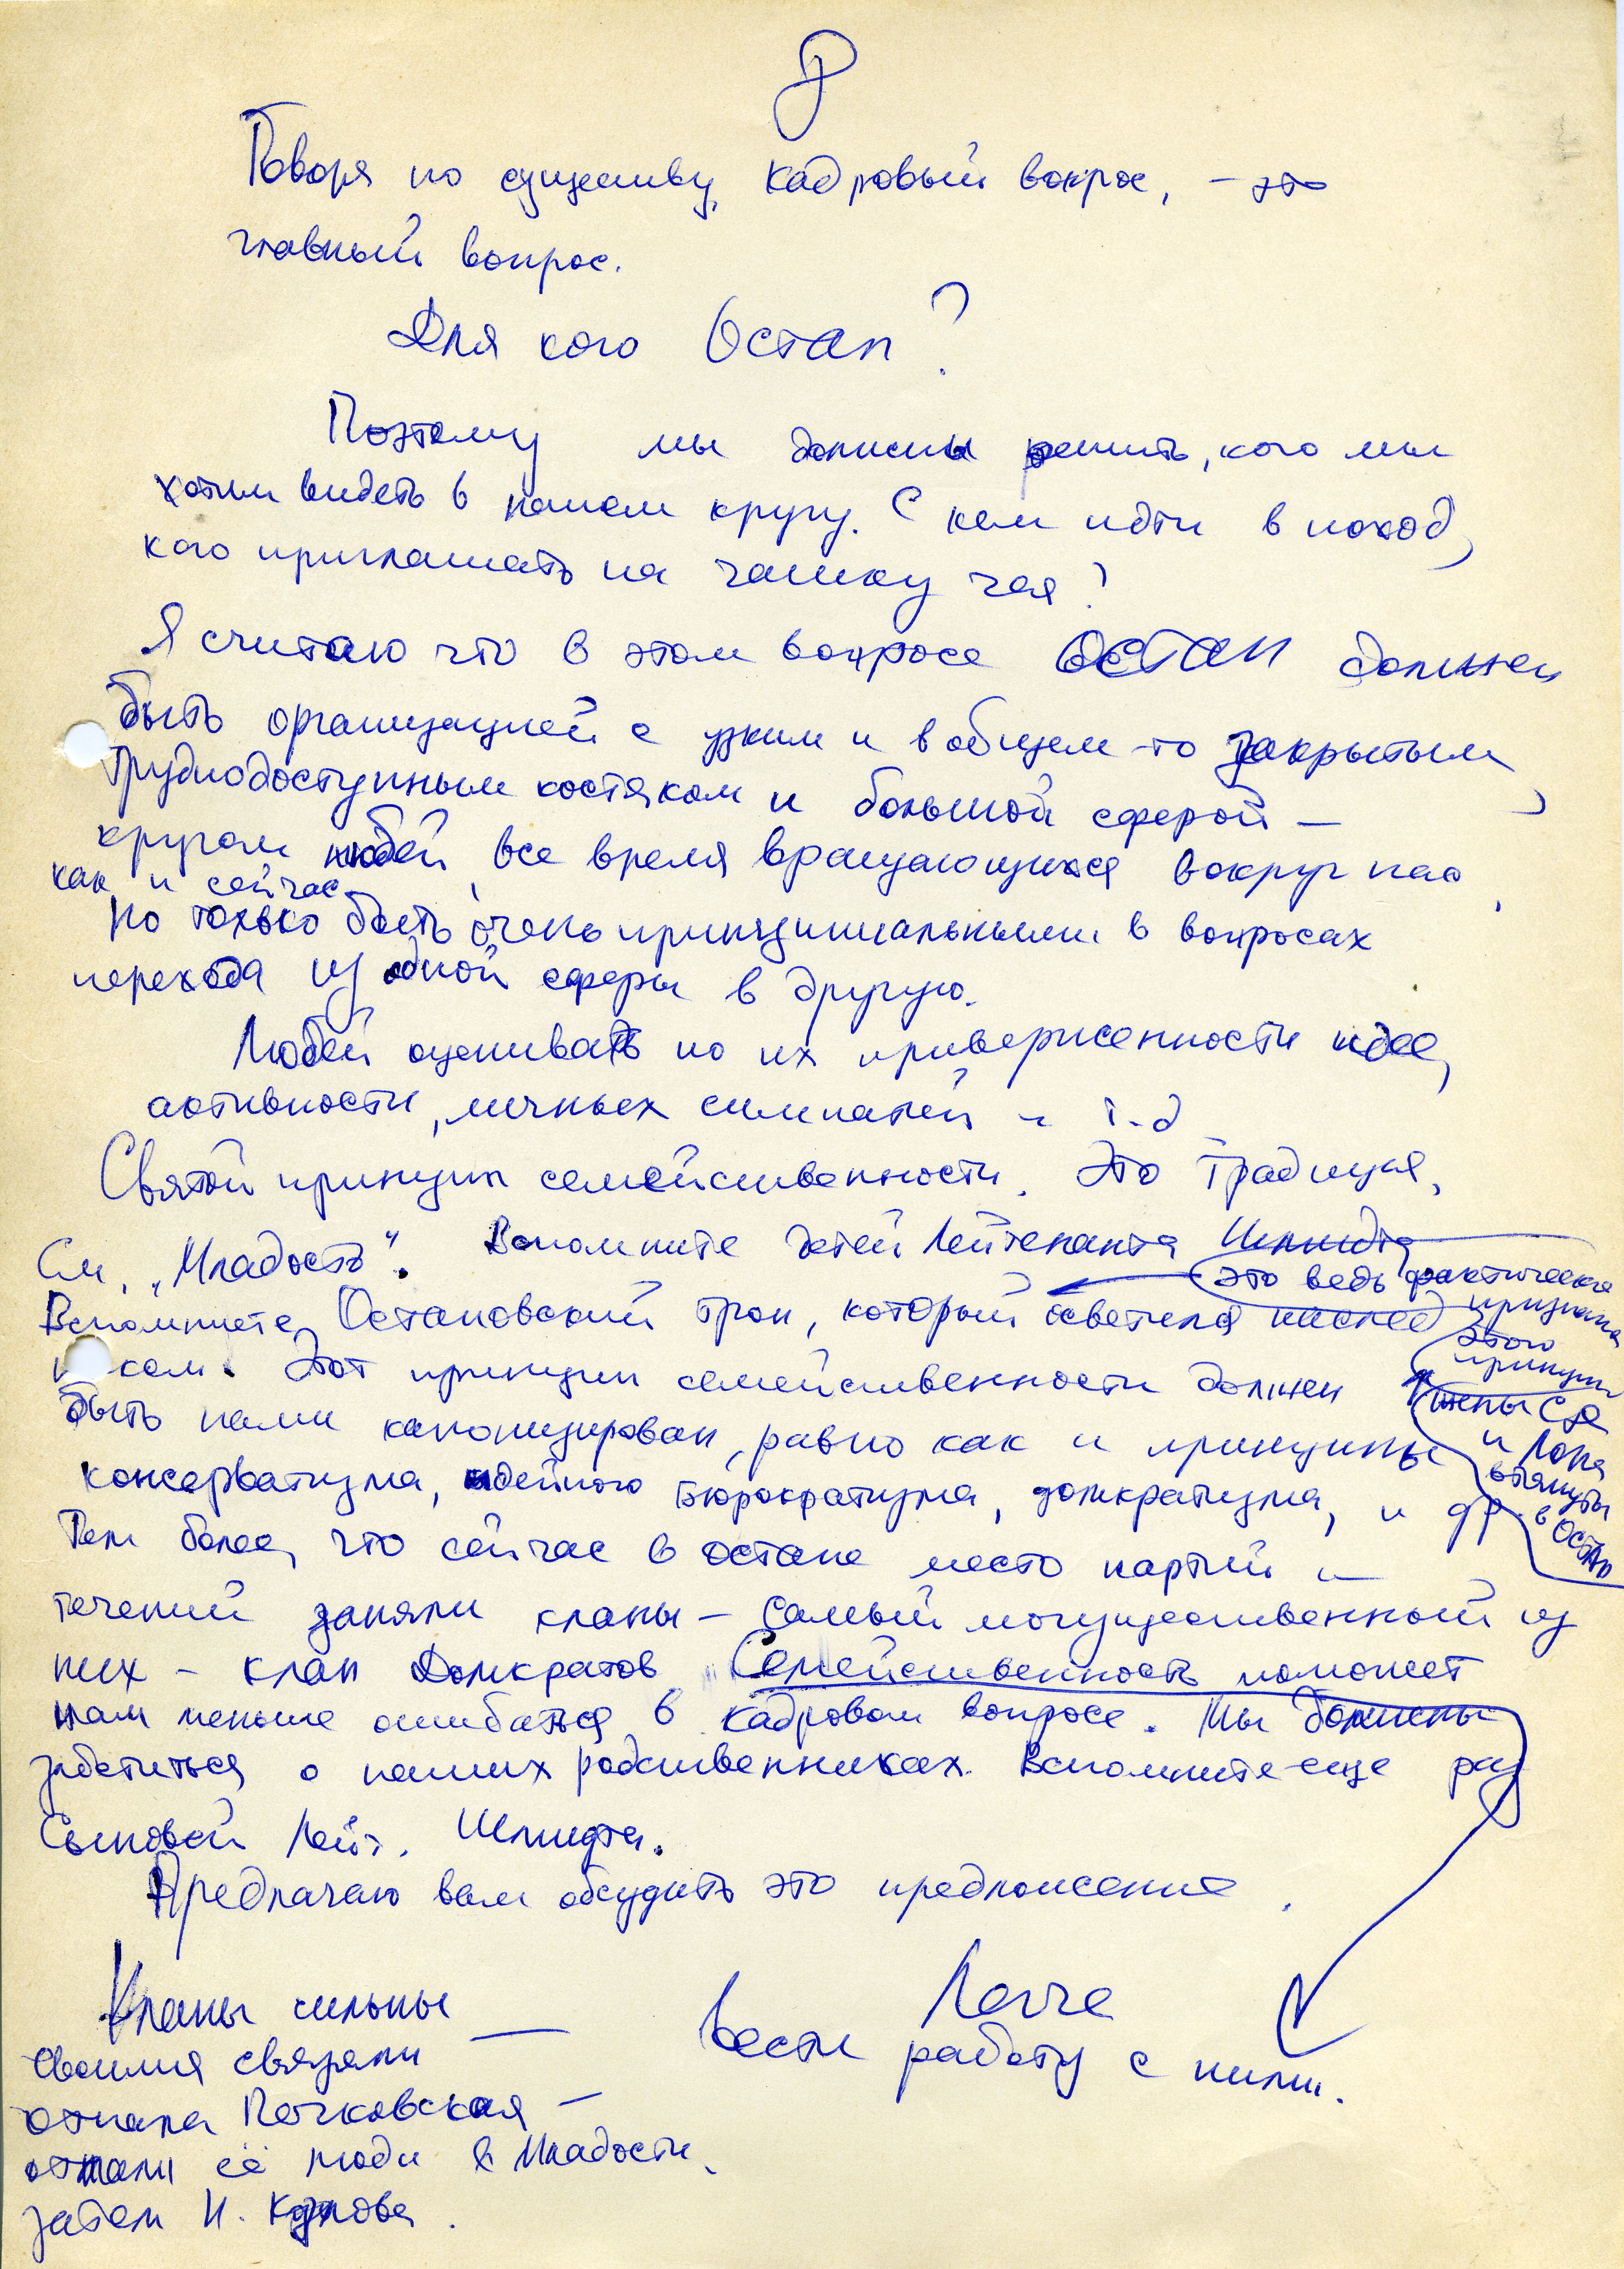 8
Говоря по существу, кадровый вопрос, – это
главный вопрос.
Для кого Остап?
Поэтому мы должны решить, кого мы
хотим видеть в нашем кругу. С кем идти в поход,
кого приглашать на чашку чая?
Я считаю что в этом вопросе ОСТАП должен
быть организацией с узким и в общем-то закрытым,
труднодоступным костяком и большой сферой –
кругом людей, все время вращающихся вокруг нас,
как и сейчас
Но только быть очень принципиальными в вопросах
перехода из одной сферы в другую.
Людей оценивать по их приверженности идее,
активности, личных симпатий и т.д
Святой принцип семейственности. Это традиция,
См. „Младость". Вспомните детей Лейтенанта Шмидта
это ведь фактическое
признание
этого
принципа
Вспомните Остаповский трон, который осветился наслед
ком. Этот принцип семейственности должен
жены Са
и Лора
втянуты
в ОСТАП
быть нами канонизирован, равно как и принципы
консерватизма, идейного бюрократизма, домкратизма, и др.
Тем более, что сейчас в остапе место партий и
течений заняли кланы – самый могущественный из
них – клан Домкратов. Семейственность поможет
нам меньше ошибаться в кадровом вопросе. Мы должны
заботиться о наших родственниках. Вспомните еще раз
Сыновей Лейт. Шмидта.
Предлагаю вам обсудить это предложение.
Кланы сильны
своими связями
отпала Печковская –
отпали её люди в Младости,
затем И.
Легче
вести работу с ними.